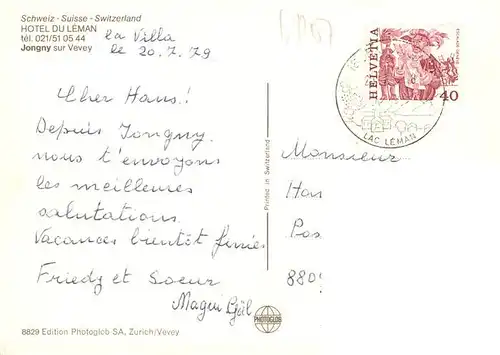 Schweiz - Suisse - Switzerland
HOTEL DU LÉMAN
tél. 021/51 05 44
Jongny sur Vevey
La Villa
le 20.7.79
Cher Hans!
Depuis Jongny
nous t'envoyons
les meilleures
salutations.
Vacances bientôt finies
Friedy et Soeur
Magui
8829 Edition Photoglob SA, Zurich/Vevey
Printed in Switzerland
PHOTOGLOB
HELVETIA
40
LAC LÉMAN
Monsieur
Han
Pos
880